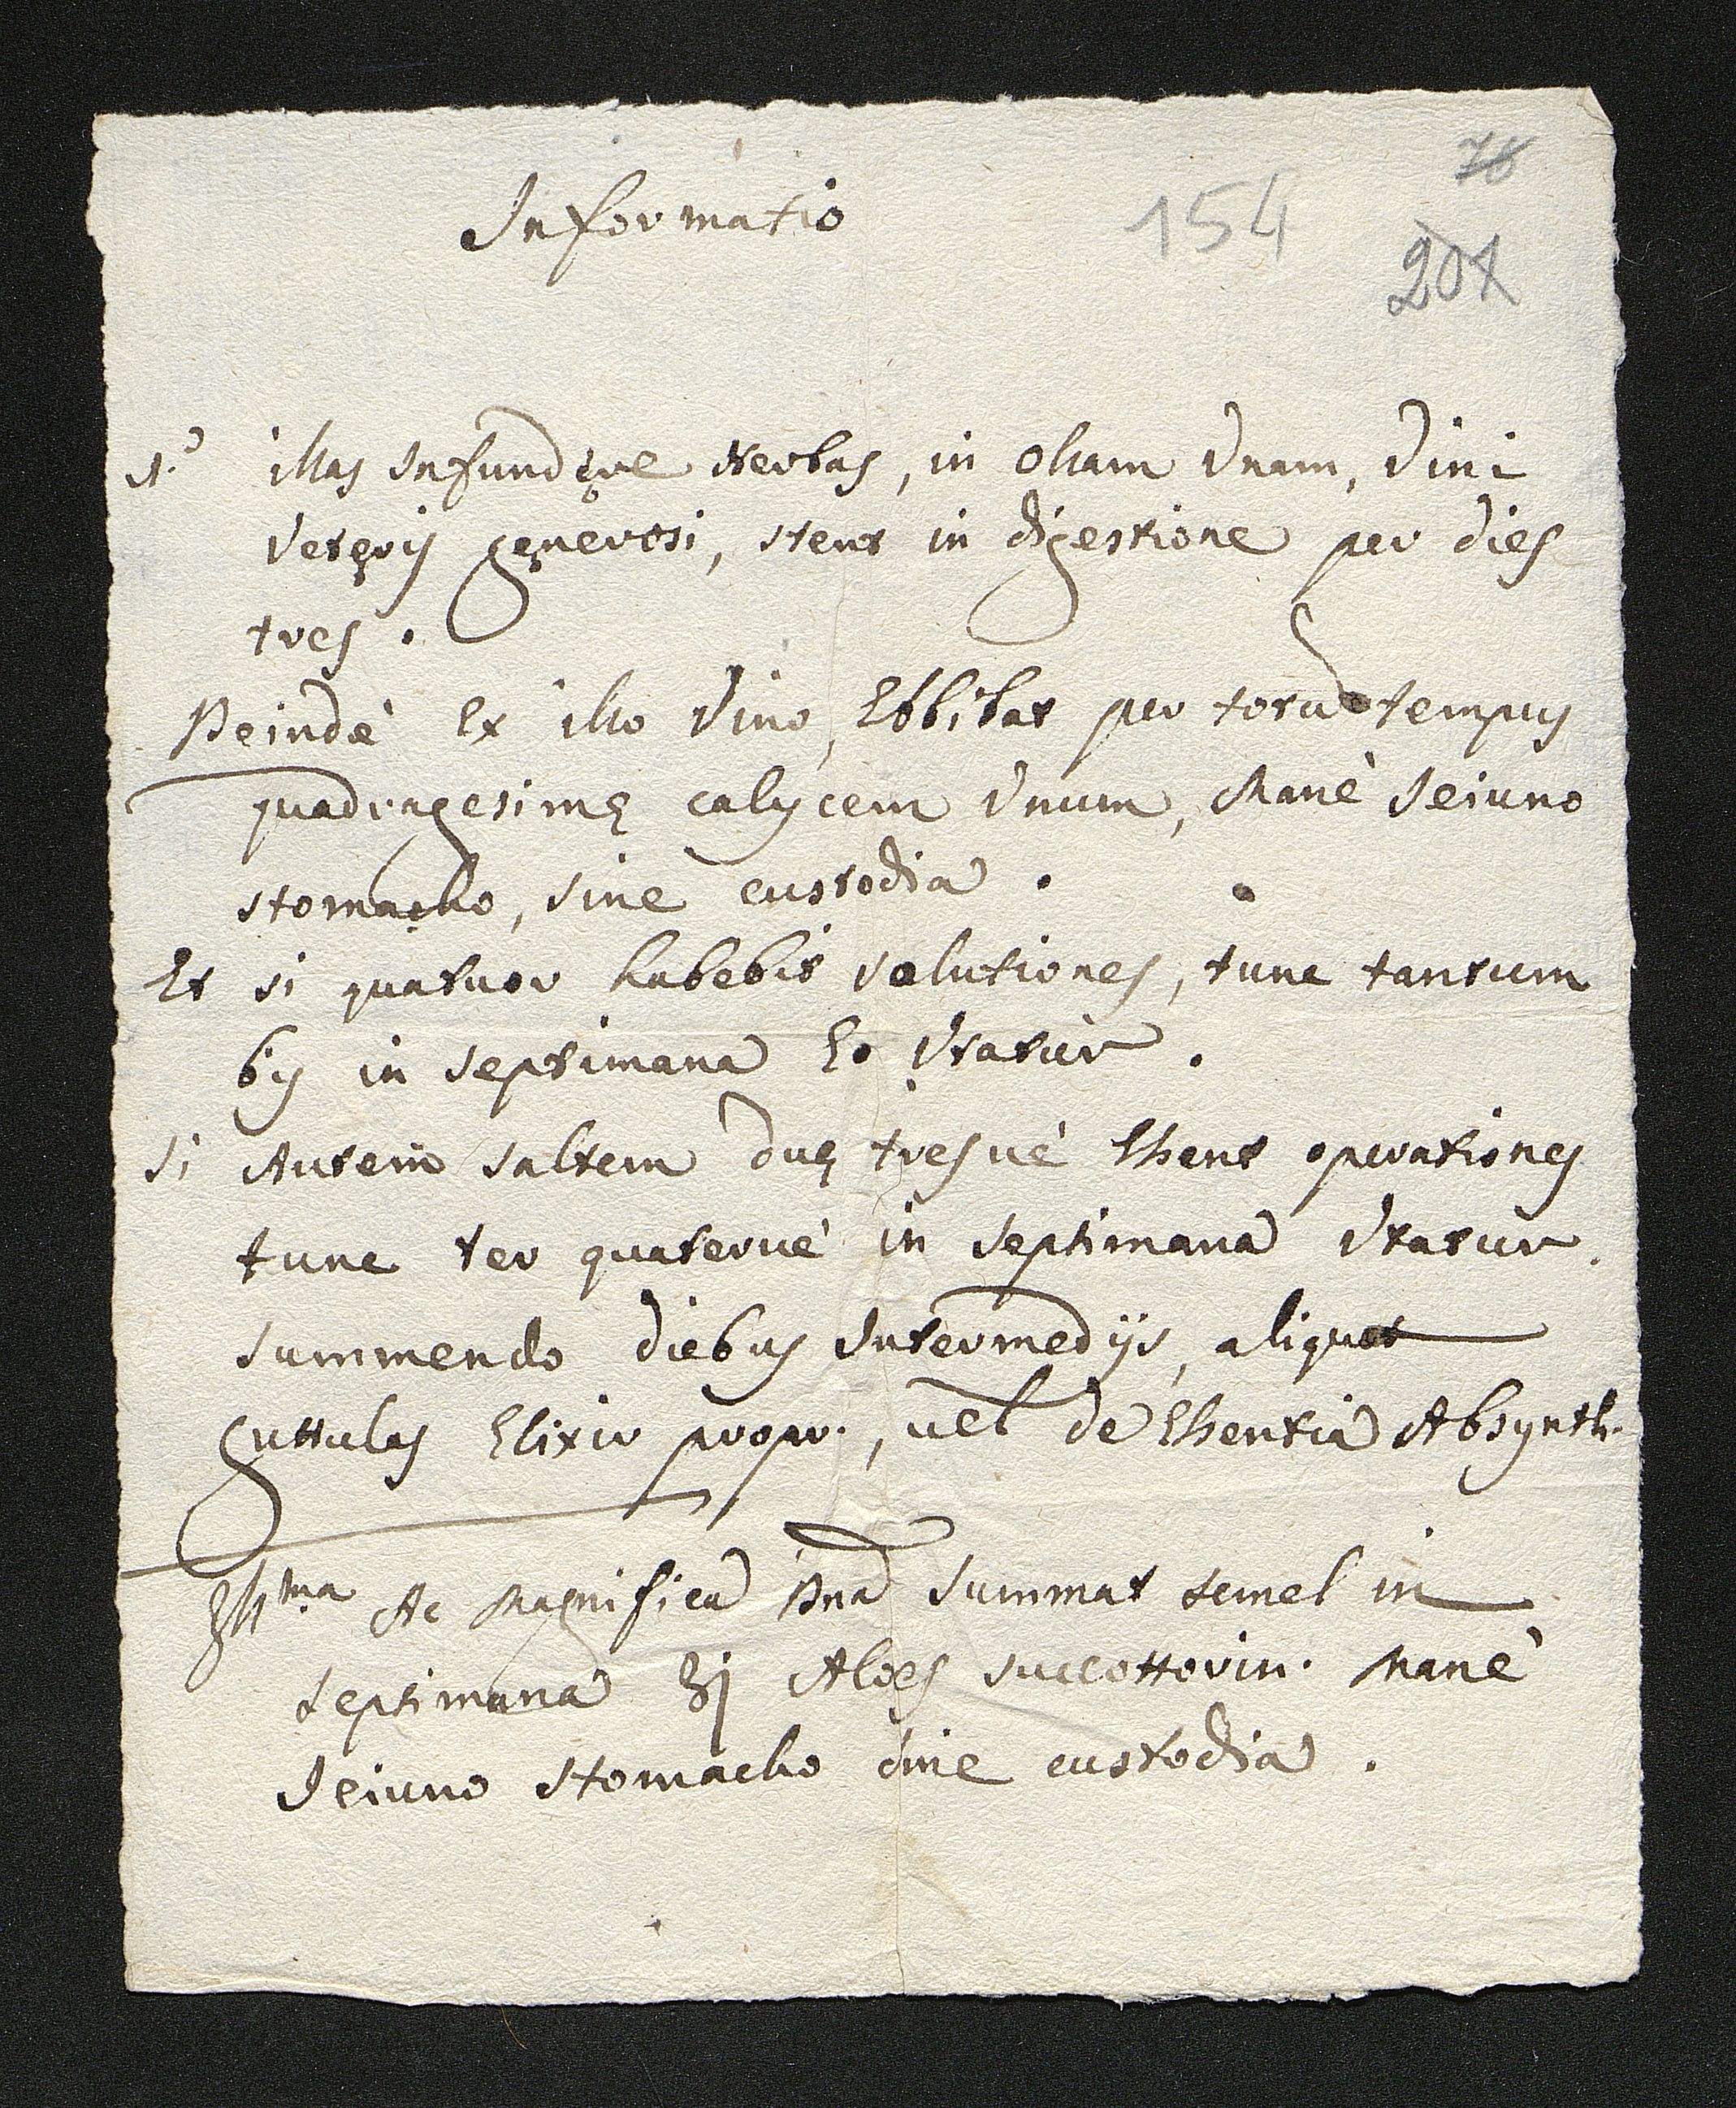 Informatio
154
78
201
N.º illas Infundere Herbas, in ollam Vnam, Vini
Veteris generosi, stent in digestione per dies
tres .
Deindè Ex illo Vino, Ebbibat per totum tempus
quadragesimę calycem Vnum, Manè Jeiuno
stomacho, sine custodia .
Et si quatuor habebit solutiones, tunc tantum
bis in septimana Eo Vtatur .
Si Autem saltem duę tresuè Essent operationes
tunc ter quateruè in septimana Vtatur.
summendo diebus Intermedijs, aliquot
guttulas Elixir propr., uel de Essentia Absynth.
Illma Ac Magnifica Dna Summat semel in
septimana ʒj Aloes succottorin. Manè
Jeiuno stomacho sine custodia .